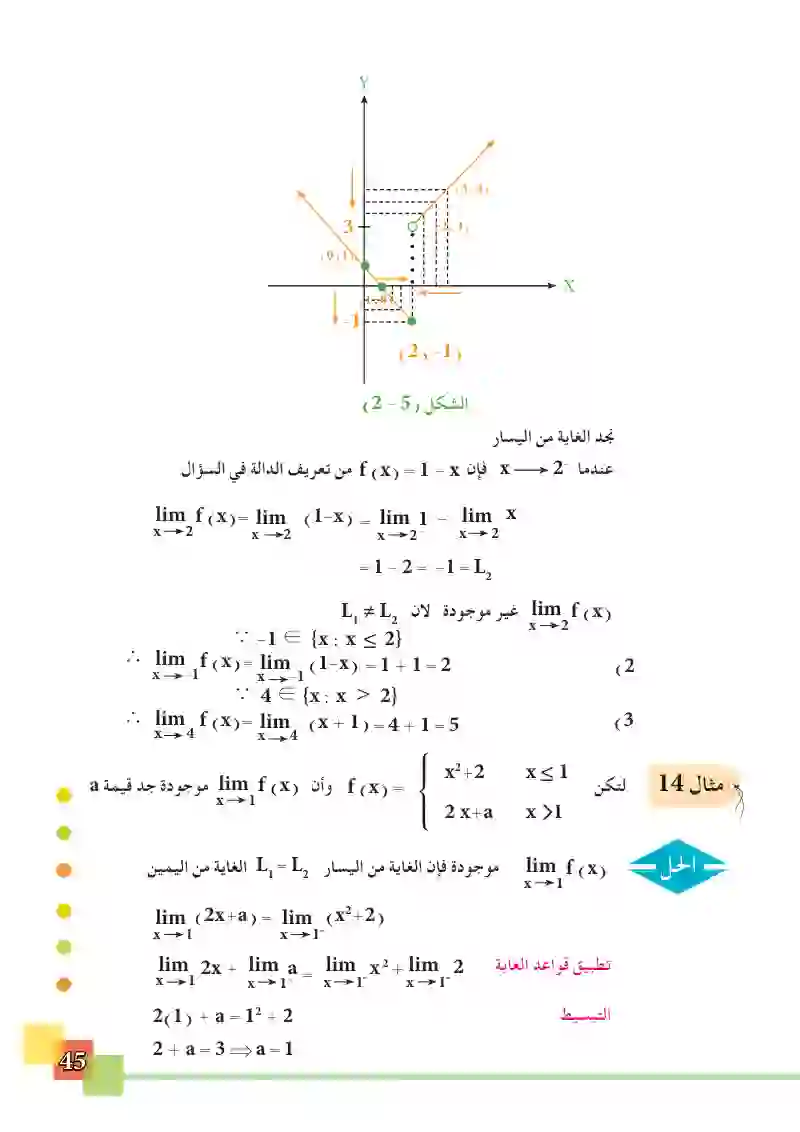 Y
(3, 4)
3
(2, 3)
(0, 1)
X
-1
(2, -1)
الشكل (2 - 5)
نجد الغاية من اليسار
عندما x ⟶ 2⁻ فإن f(x) = 1 - x من تعريف الدالة في السؤال
lim x→2 f(x) = lim x→2 (1-x) = lim x→2⁻ 1 - lim x→2 x
= 1 - 2 = -1 = L₂
lim x→2 f(x) غير موجودة لان L₁ ≠ L₂
∵ -1 ∈ {x : x ≤ 2}
2) ∴ lim x→-1 f(x) = lim x→-1 (1-x) = 1 + 1 = 2
∵ 4 ∈ {x : x > 2}
3) ∴ lim x→4 f(x) = lim x→4 (x + 1) = 4 + 1 = 5
مثال 14 لتكن f(x) = { x²+2 x ≤ 1
2x+a x > 1
وأن lim x→1 f(x) موجودة جد قيمة a
الحل
lim x→1 f(x) موجودة فإن الغاية من اليسار L₁ = L₂ الغاية من اليمين
lim x→1 (2x+a) = lim x→1⁻ (x²+2)
تطبيق قواعد الغاية lim x→1 2x + lim x→1 a = lim x→1⁻ x² + lim x→1⁻ 2
التبسيط 2(1) + a = 1² + 2
2 + a = 3 ⟹ a = 1
45